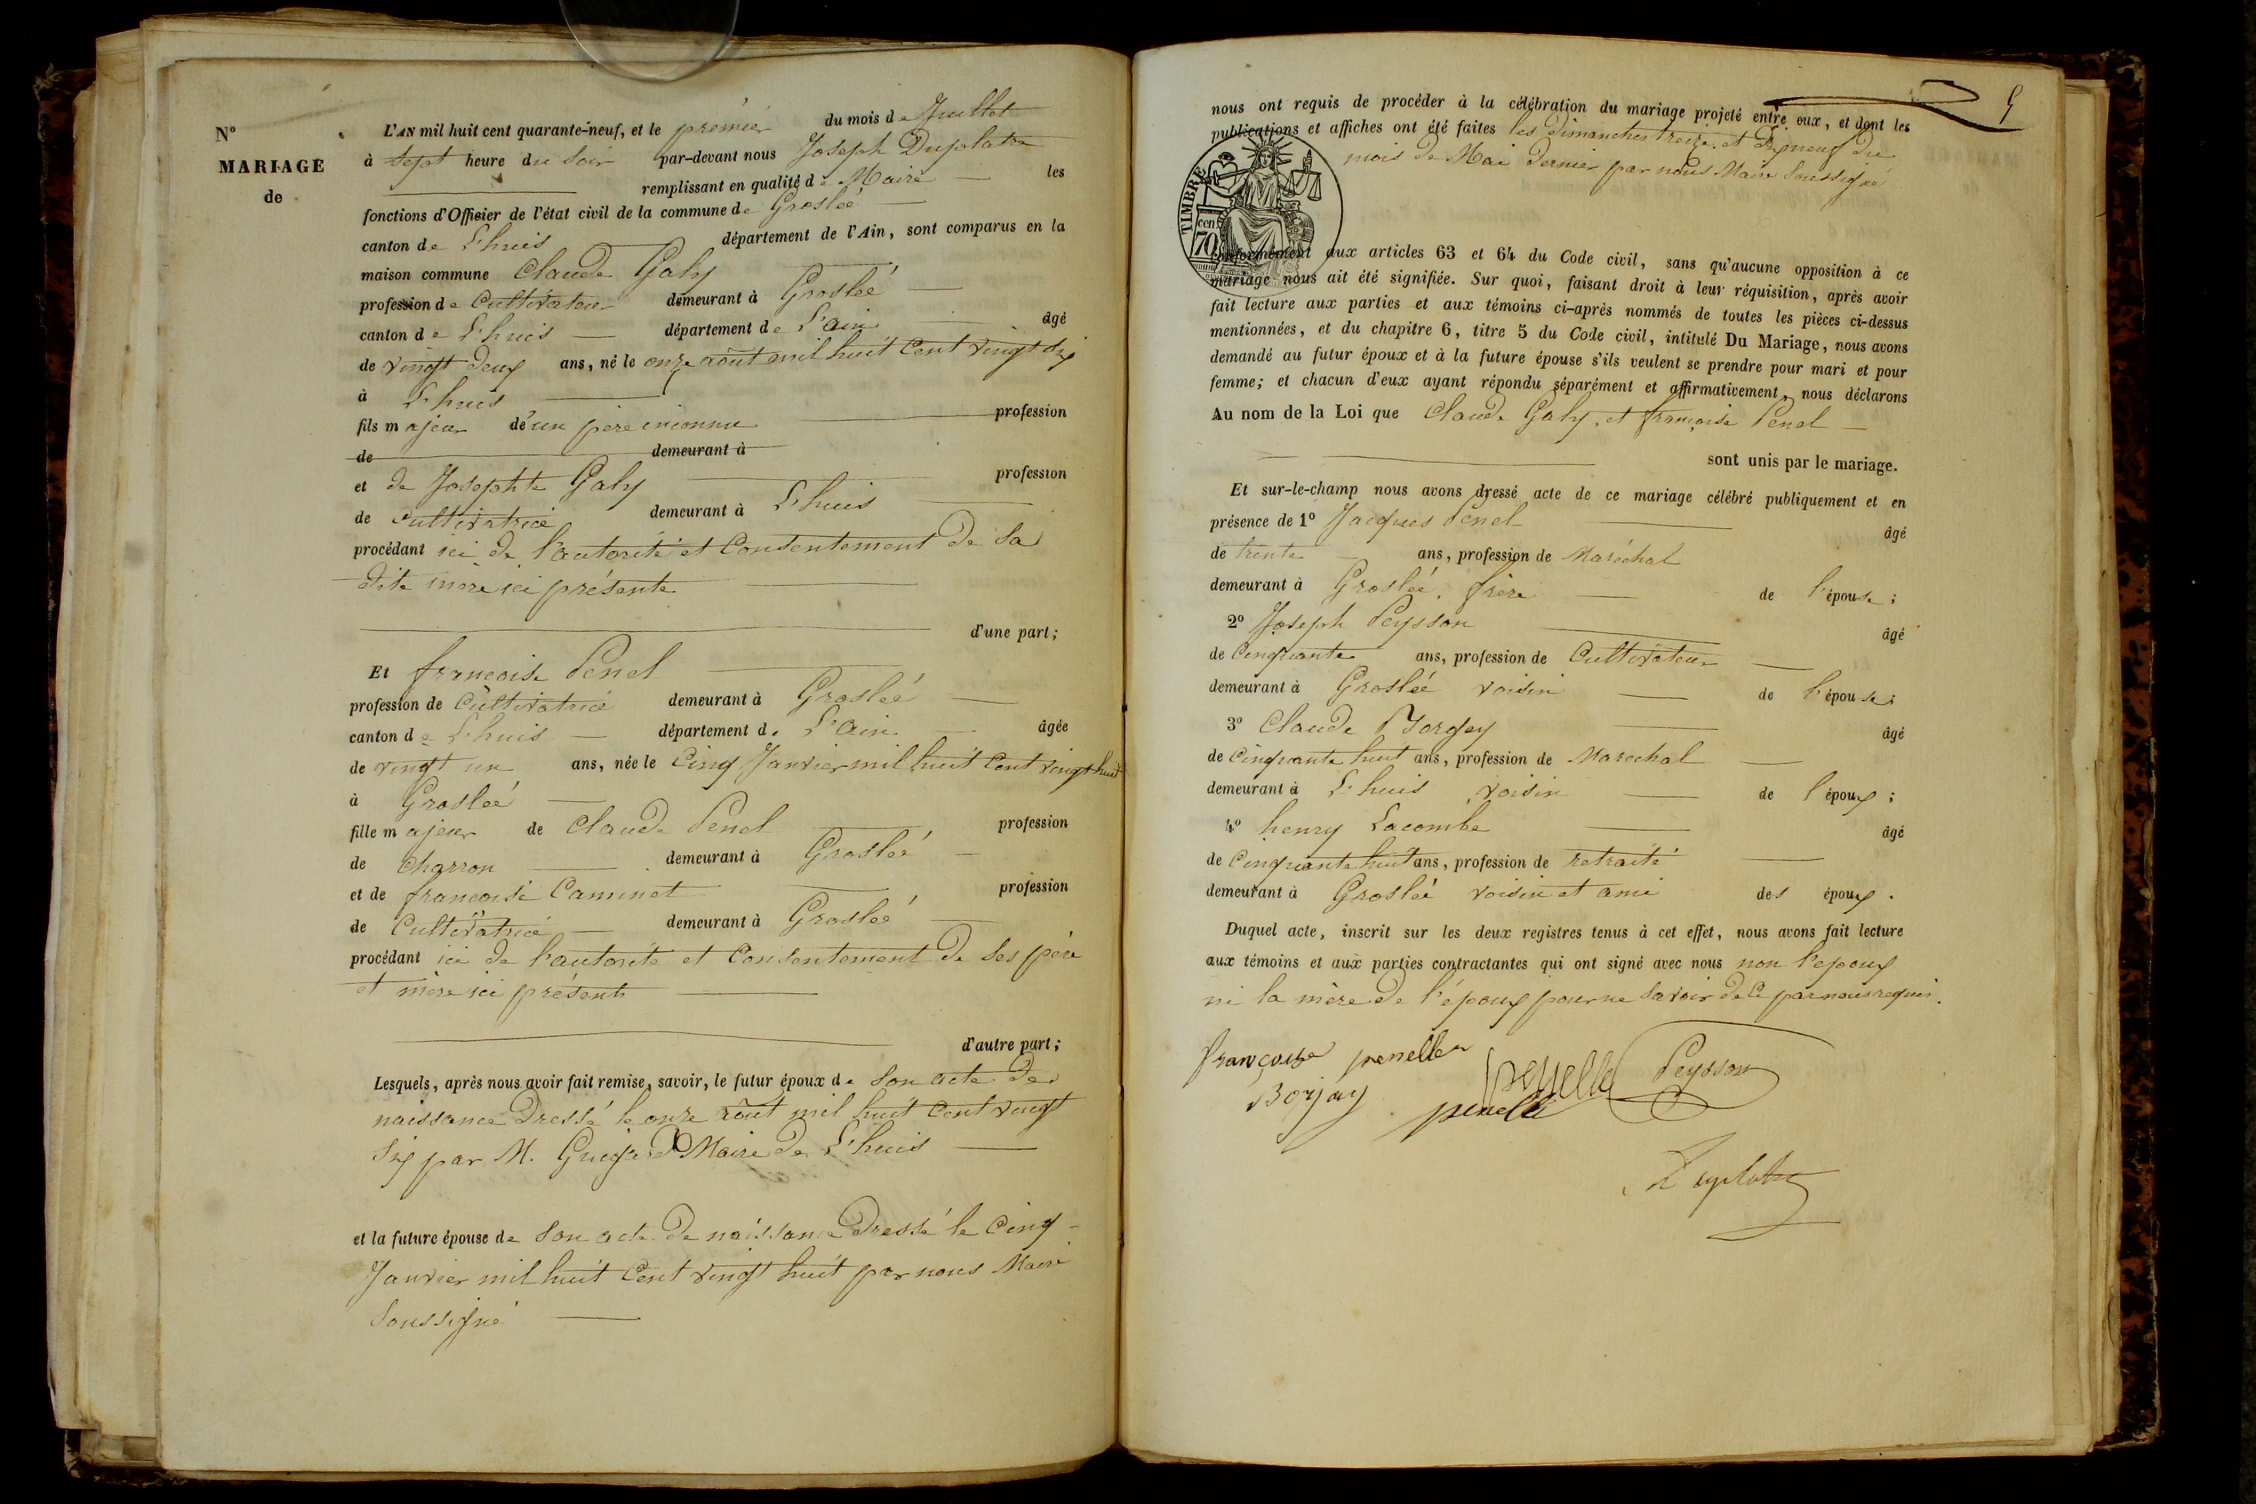 N°
MARIAGE
de
L'AN mil huit cent quarante-neuf, et le premier du mois de Juillet
à sept heure du soir par-devant nous Joseph Duplatre
remplissant en qualité de Maire les
fonctions d'Officier de l'état civil de la commune de Groslée
canton de L'huis département de l'Ain, sont comparus en la
maison commune Claude Galy
profession de Cultivateur demeurant à Groslée
canton de L'huis département de L'ain âgé
de vingt deux ans, né le onze août mil huit cent vingt six
à L'huis
fils majeur de un père inconnu profession
de demeurant à
et de Josephte Galy profession
de cultivatrice demeurant à L'huis
procédant ici de l'autorité et Consentement de Sa
dite mère ici présente
d'une part;
Et françoise Penel
profession de Cultivatrice demeurant à Groslée
canton de L'huis département de L'Ain âgée
de vingt un ans, née le Cinq Janvier mil huit Cent vingt huit
à Groslée
fille majeur de Claude Penel profession
de Charron demeurant à Groslée
et de francoise Caminet profession
de Cultivatrice demeurant à Groslée
procédant ici de l'autorité et Consentement de Ses père
et mère ici présents
d'autre part;
Lesquels, après nous avoir fait remise, savoir, le futur époux de Son acte de
naissance Dressé le onze août mil huit Cent vingt
Six par M. Maire de L'huis
et la future épouse de Son acte de naissance Dressé le Cinq
Janvier mil huit Cent vingt huit par nous Maire
Soussigné
5
nous ont requis de procéder à la célébration du mariage projeté entre eux, et dont les
publications et affiches ont été faites les dimanches treize et Dixneuf du
mois de Mai dernier par nous Maire Soussigné
TIMBRE
cen
70
conformément aux articles 63 et 64 du Code civil, sans qu'aucune opposition à ce
mariage nous ait été signifiée. Sur quoi, faisant droit à leur réquisition, après avoir
fait lecture aux parties et aux témoins ci-après nommés de toutes les pièces ci-dessus
mentionnées, et du chapitre 6, titre 5 du Code civil, intitulé Du Mariage, nous avons
demandé au futur époux et à la future épouse s'ils veulent se prendre pour mari et pour
femme; et chacun d'eux ayant répondu séparément et affirmativement, nous déclarons
Au nom de la Loi que Claude Galy, et françoise Penel
sont unis par le mariage.
Et sur-le-champ nous avons dressé acte de ce mariage célébré publiquement et en
présence de 1° Jacques Penel âgé
de trente ans, profession de Maréchal
demeurant à Groslée, frère de l'épouse;
2° Joseph Peysson âgé
de Cinquante ans, profession de Cultivateur
demeurant à Groslée voisin de l'épouse;
3° Claude Borgey âgé
de Cinquante huit ans, profession de Marechal
demeurant à L'huis voisin de l'époux;
4° henry Lacombe âgé
de Cinquante huit ans, profession de retraité
demeurant à Groslée voisin et ami des époux.
Duquel acte, inscrit sur les deux registres tenus à cet effet, nous avons fait lecture
aux témoins et aux parties contractantes qui ont signé avec nous non l'epoux
ni la mère de l'époux pour ne Savoir de ce par nous requis.
françoise penelle
penelle Peysson
Borjay penelle
Duplatre